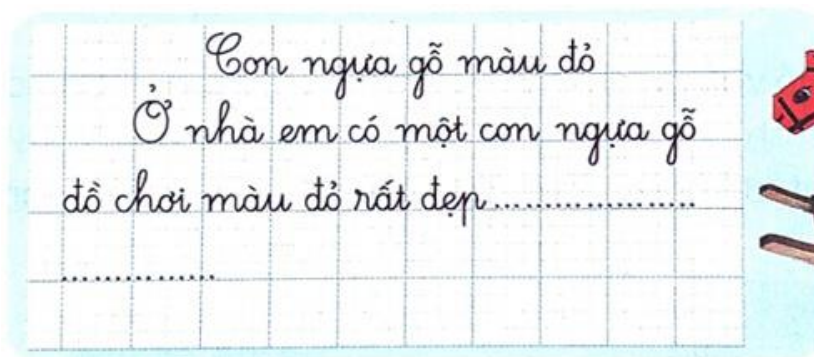 Con ngựa gỗ màu đỏ
Ở nhà em có một con ngựa gỗ
đồ chơi màu đỏ rất đẹp ....................
................